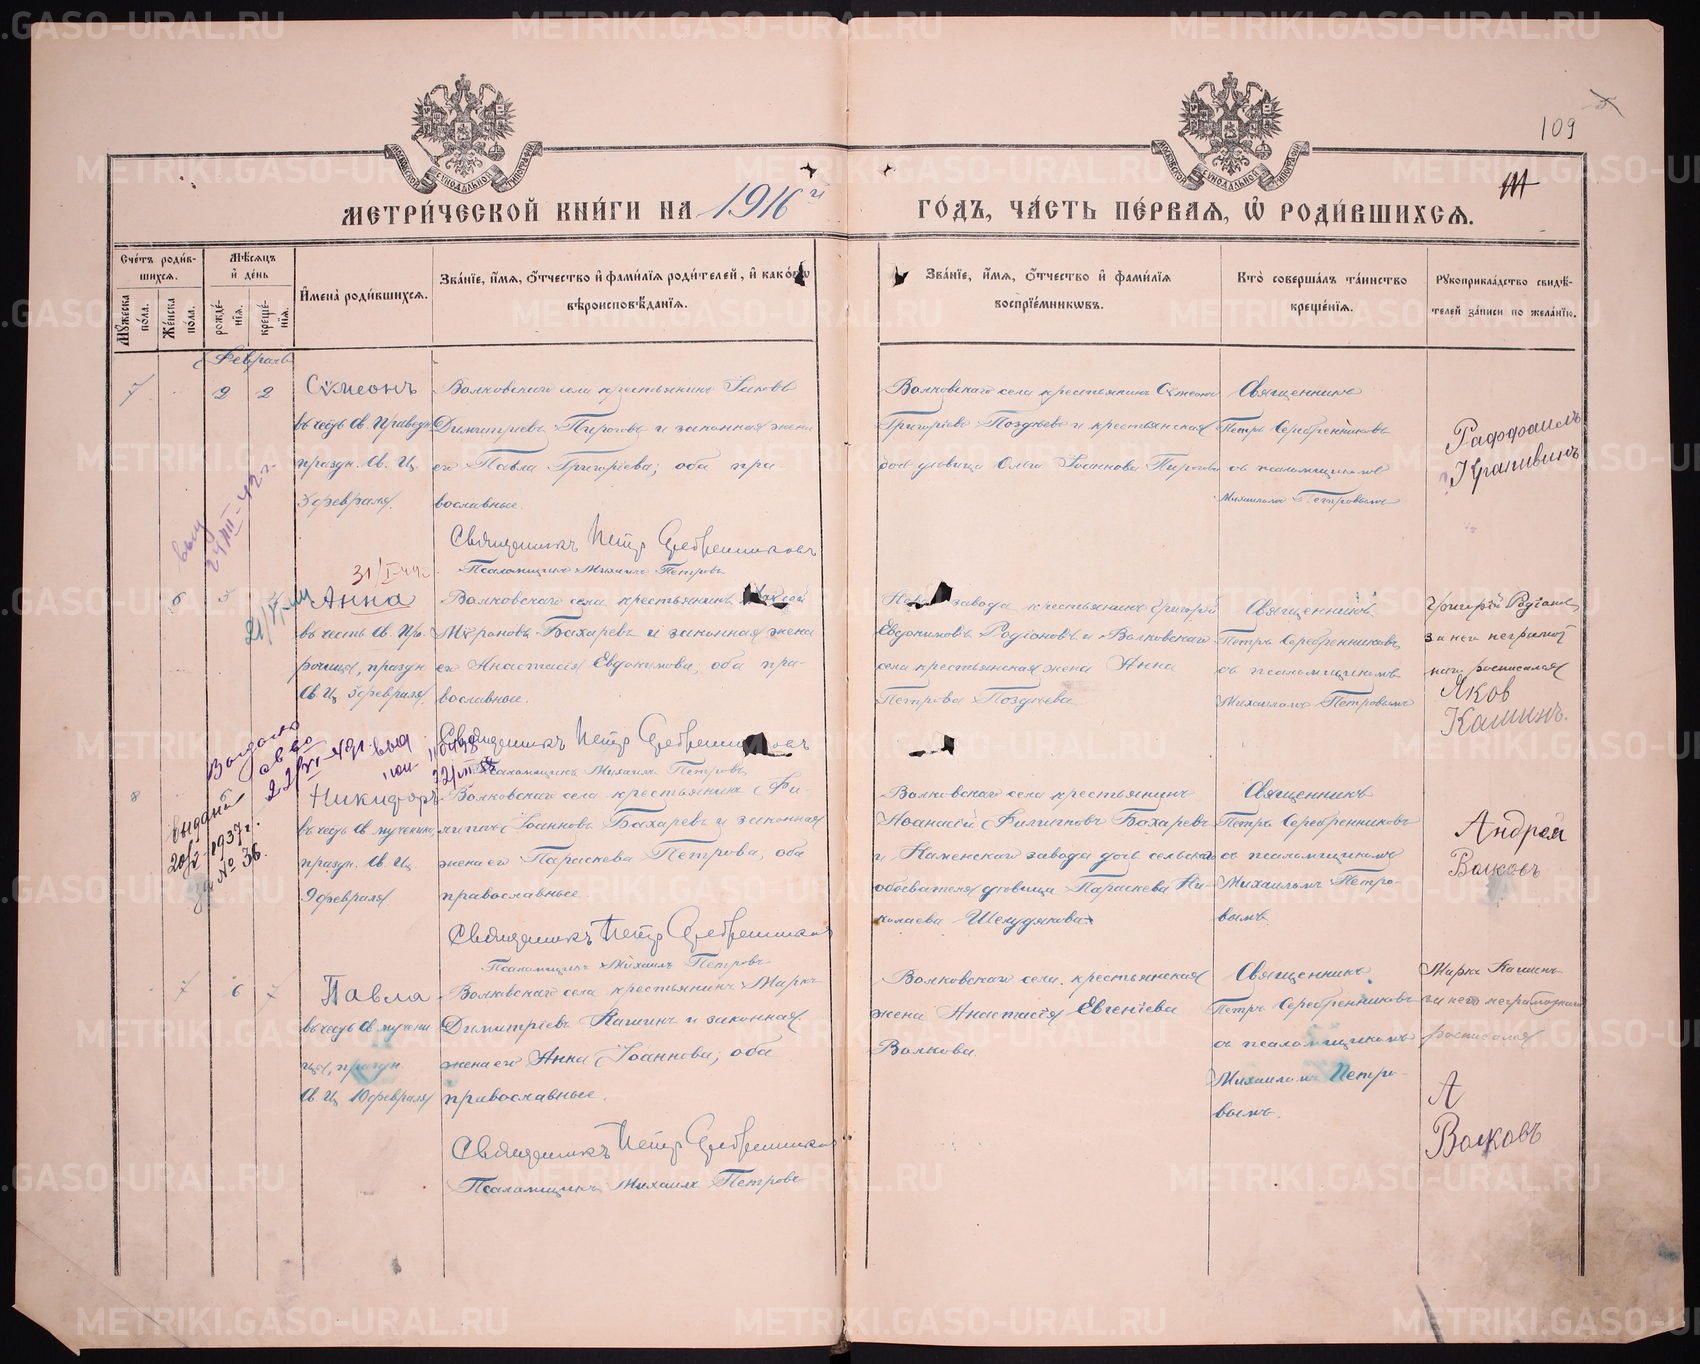 109
МЕТРИ́ЧЕСКОЙ КНИ́ГИ НА 1916й ГО́ДЪ, ЧА́СТЬ ПЕ́РВАЯ, Ѡ РОДИ́ВШИХСЯ.
Сче́тъ роди́в-
шихся.
Мѣ́сяцъ
и҆ де́нь
Мꙋ́жеска по́ла.
Же́нска по́ла.
рожде́-
нїя.
креще́-
нїя.
И҆мена̀ роди́вшихся.
Зва́нїе, и҆́мя, ѻ҆́тчество и҆ фами́лїя роди́телей, и҆ како́гѡ
вѣроисповѣ́данїя.
Зва́нїе, и҆́мя, ѻ҆́тчество и҆ фами́лїя
воспрїе́мникѡвъ.
Кто̀ соверша́лъ та́инство
креще́нїя.
Рꙋкоприкла́дство свидѣ́-
телей за́писи по жела́нїю.
Февраль
7
2
2
Сѵмеонъ
въ честь Св. Праведн.
праздн. Св. Ц.
3 февраля.
Волковскаго села крестьянинъ Іаковъ
Димитріевъ Пироговъ и законная жена
его Павла Григоріева; оба пра-
вославные.
Священникъ Петръ Серебренниковъ
Псаломщикъ Михаилъ Петровъ
Волковскаго села крестьянинъ Сѵмеонъ
Григоріевъ Поздѣевъ и крестьянская
дочь дѣвица Ольга Іоаннова Пирогова
Священникъ
Петръ Серебренниковъ
съ псаломщикомъ
Михаиломъ Петровымъ
Рафаилъ
Крапивинъ
6
5
Анна
въ честь Св. Про-
рочицы, праздн.
Св. Ц. 3 февраля.
Волковскаго села крестьянинъ
Мѵроновъ Бахаревъ и законная жена
его Анастасія Евдокимова; оба пра-
вославные.
Священникъ Петръ Серебренниковъ
Псаломщикъ Михаилъ Петровъ
завода крестьянинъ Григорій
Евдокимовъ Родіоновъ и Волковскаго
села крестьянская жена Анна
Петрова Поздѣева
Священникъ
Петръ Серебренниковъ
съ псаломщикомъ
Михаиломъ Петровымъ
Григорій Родіонов
за него неграмот
наго росписался
Яков
Калминъ.
выданы
20/V 1937 г.
за № 36.
8
Никифоръ
въ честь Св. мученика
праздн. Св. Ц.
9 февраля
Волковскаго села крестьянинъ Фи-
липпъ Іоанновъ Бахаревъ и законная
жена его Параскева Петрова, оба
православные.
Священникъ Петръ Серебренниковъ
Псаломщикъ Михаилъ Петровъ
Волковскаго села крестьянинъ
Аѳанасій Филипповъ Бахаревъ
и Каменскаго завода дочь сельскаго
обывателя дѣвица Параскева Ни-
колаева Шелудякова
Священникъ
Петръ Серебренниковъ
съ псаломщикомъ
Михаиломъ Петро-
вымъ
Андрей
Волковъ
7
6
7
Павла
въ честь Св. мучени-
цы, праздн.
Св. Ц. 10 февраля
Волковскаго села крестьянинъ Маркъ
Димитріевъ Кашинъ и законная
жена его Анна Іоаннова; оба
православные.
Священникъ Петръ Серебренниковъ
Псаломщикъ Михаилъ Петровъ
Волковскаго села крестьянская
жена Анастасія Евгеніева
Волкова.
Священникъ
Петръ Серебренниковъ
съ псаломщикомъ
Михаиломъ Петро-
вымъ.
Маркъ Кашинъ
за него неграмотнаго
росписался
А
Волковъ
METRIKI.GASO-URAL.RU